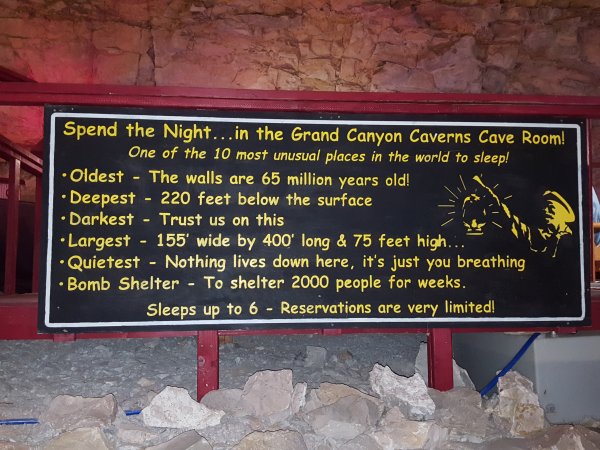 Spend the Night...in the Grand Canyon Caverns Cave Room!
One of the 10 most unusual places in the world to sleep!
· Oldest - The walls are 65 million years old!
· Deepest - 220 feet below the surface
· Darkest - Trust us on this
· Largest - 155' wide by 400' long & 75 feet high...
· Quietest - Nothing lives down here, it's just you breathing
· Bomb Shelter - To shelter 2000 people for weeks.
Sleeps up to 6 - Reservations are very limited!